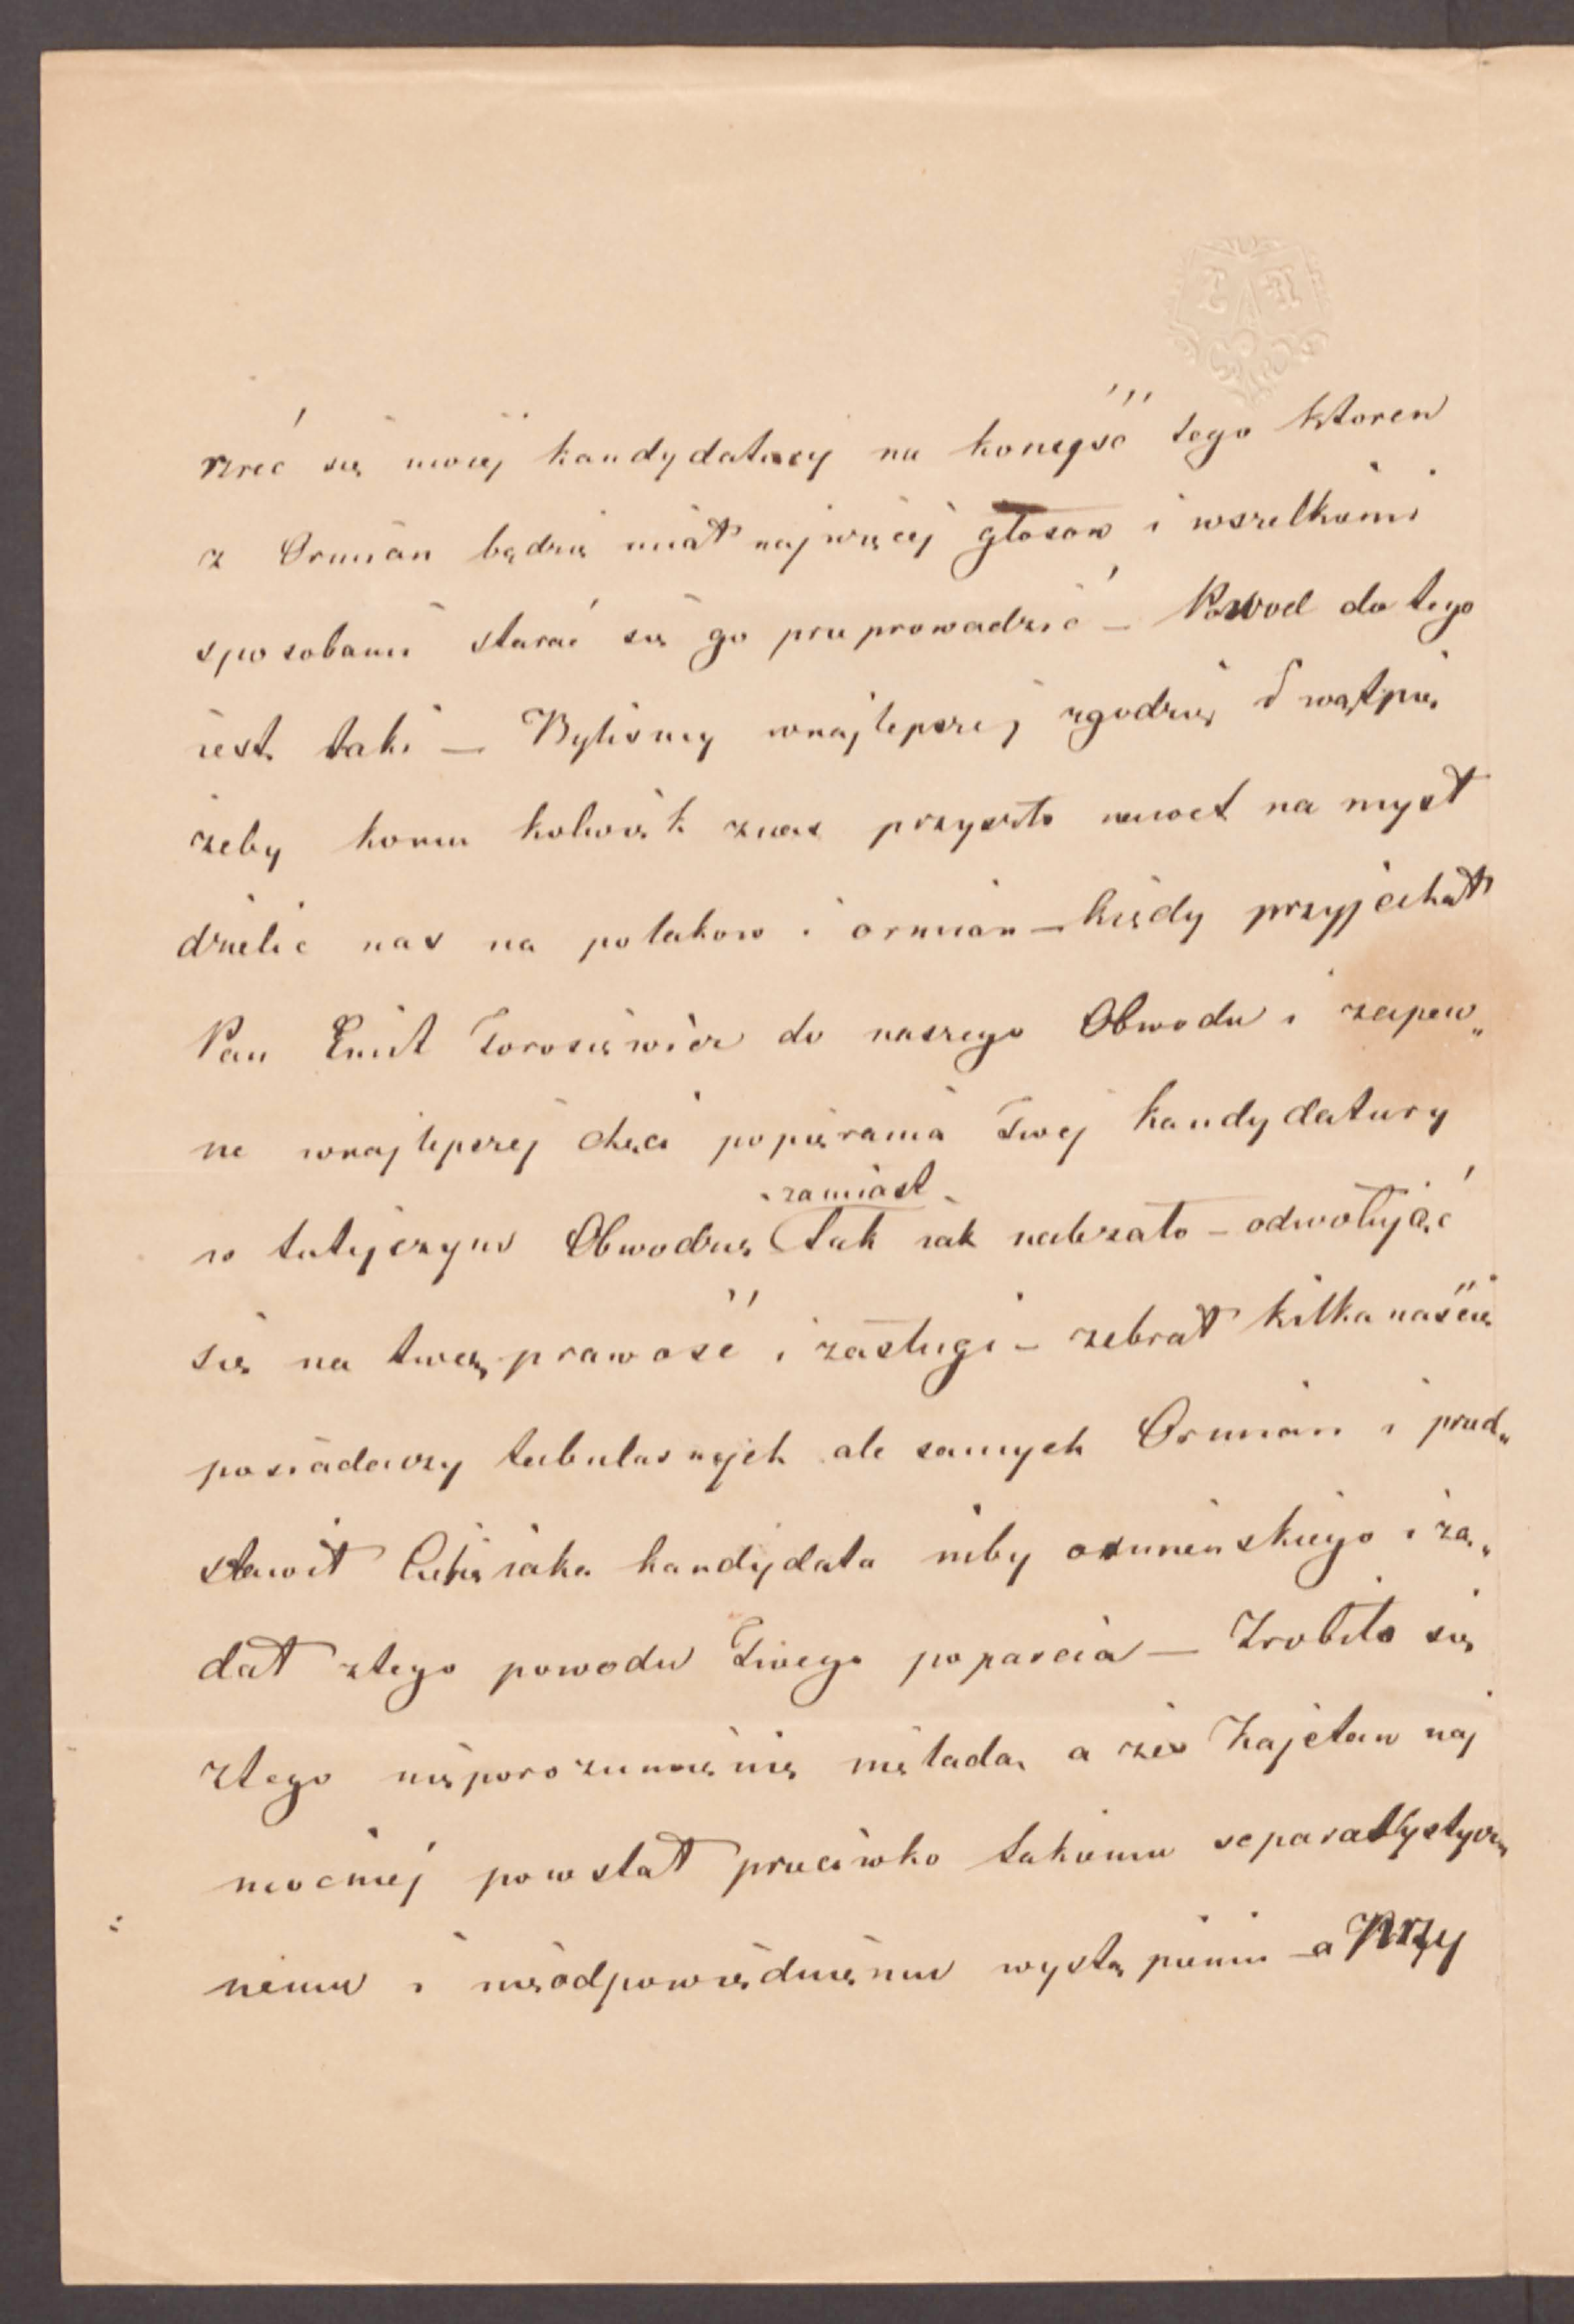 rzeć się mojej kandydatury na konyść tego ktoren
z Ormian będzie miał najwięcej głosow i wszelkiemi
sposobami starać się go przeprowadzić – Powod do tego
iest taki – Bylismy wnajlepszej zgodzie i wątpię
żeby komu kolwiek znas przyszło nawet na mysł
dzielic nas na polakow i ormian – kiedy przyjechał
Pan Emil Torosiewicz do naszego Obwodu i zapew„
ne wnajlepszej chęci popierania Twej kandydatury
zamiast
w tutejszym Obwodzie tak iak należało – odwołując
się na twę prawość i zasługi – zebrał kilkanaście
posiadaczy tabularnych ale samych Ormian i przed„
stawił kandydata niby ormienskiego i żą„
dał ztego powodu Twego poparcia – Zrobiło się
ztego nieporozumienie nielada, a że Kajetan naj
mocniej powstał przeciwko takiemu separatystycz„
nemu i nieodpowiedniemu wystąpieniu – a Przy